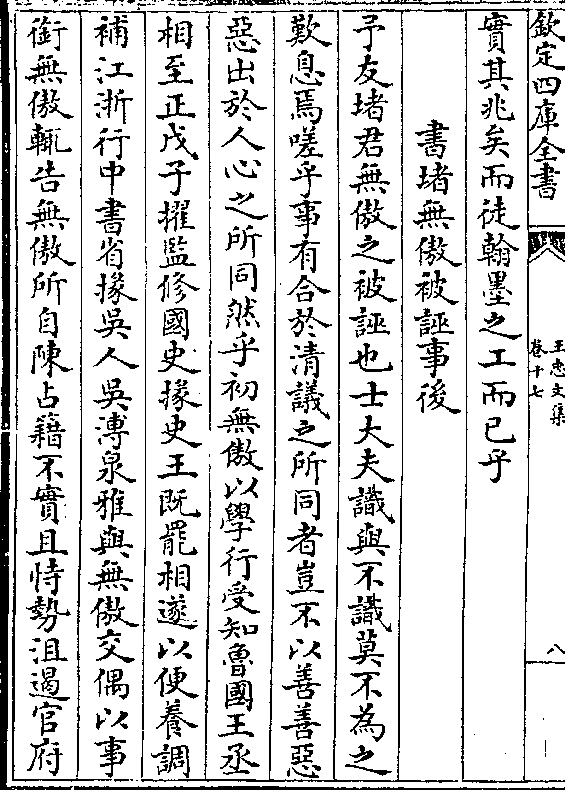 欽定四庫全書
王忠文集
卷十七
八
實其兆矣而徒翰墨之工而已乎
書堵無傲被誣事後
予友堵君無傲之被誣也士大夫識與不識莫不為之
歎息焉嗟乎事有合於清議之所同者豈不以善善惡
惡出於人心之所同然乎初無傲以學行受知魯國王丞
相至正戊子擢監修國史掾史王既罷相遂以便養調
補江浙行中書省掾吳人吳溥泉雅與無傲交偶以事
銜無傲輒告無傲所自陳占籍不實且恃勢沮遏官府